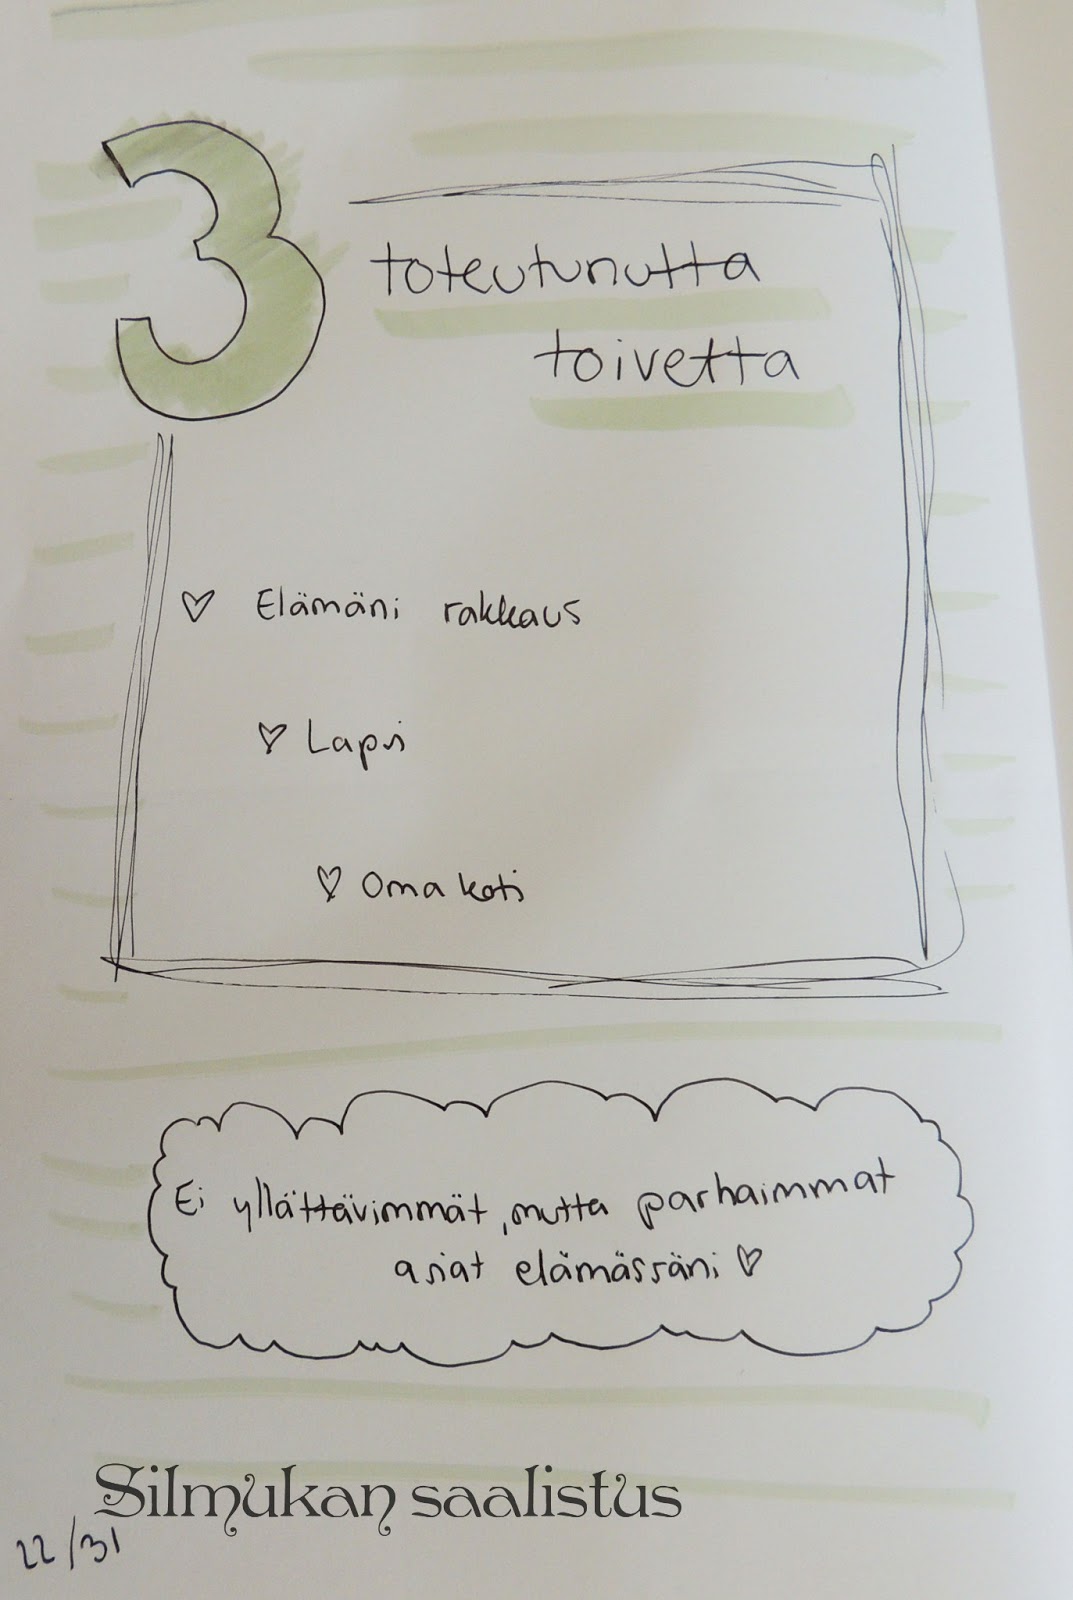 3 toteutunutta
toivetta
♡ Elämäni rakkaus
♡ Lapsi
♡ Oma koti
Ei yllättävimmät, mutta parhaimmat
asiat elämässäni ♡
Silmukan saalistus
22/31